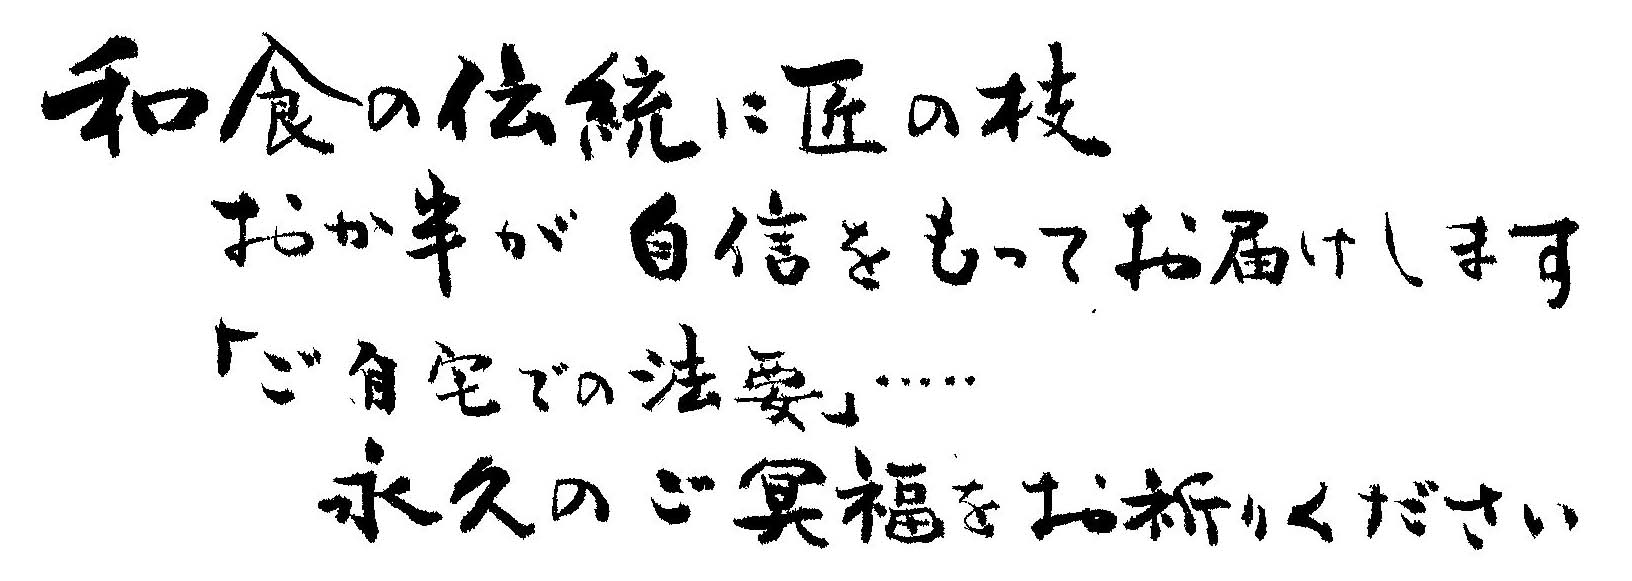 和食の伝統に匠の枝
おか半が 自信をもってお届けします
「ご自宅での法要」……
永久のご冥福をお祈りください